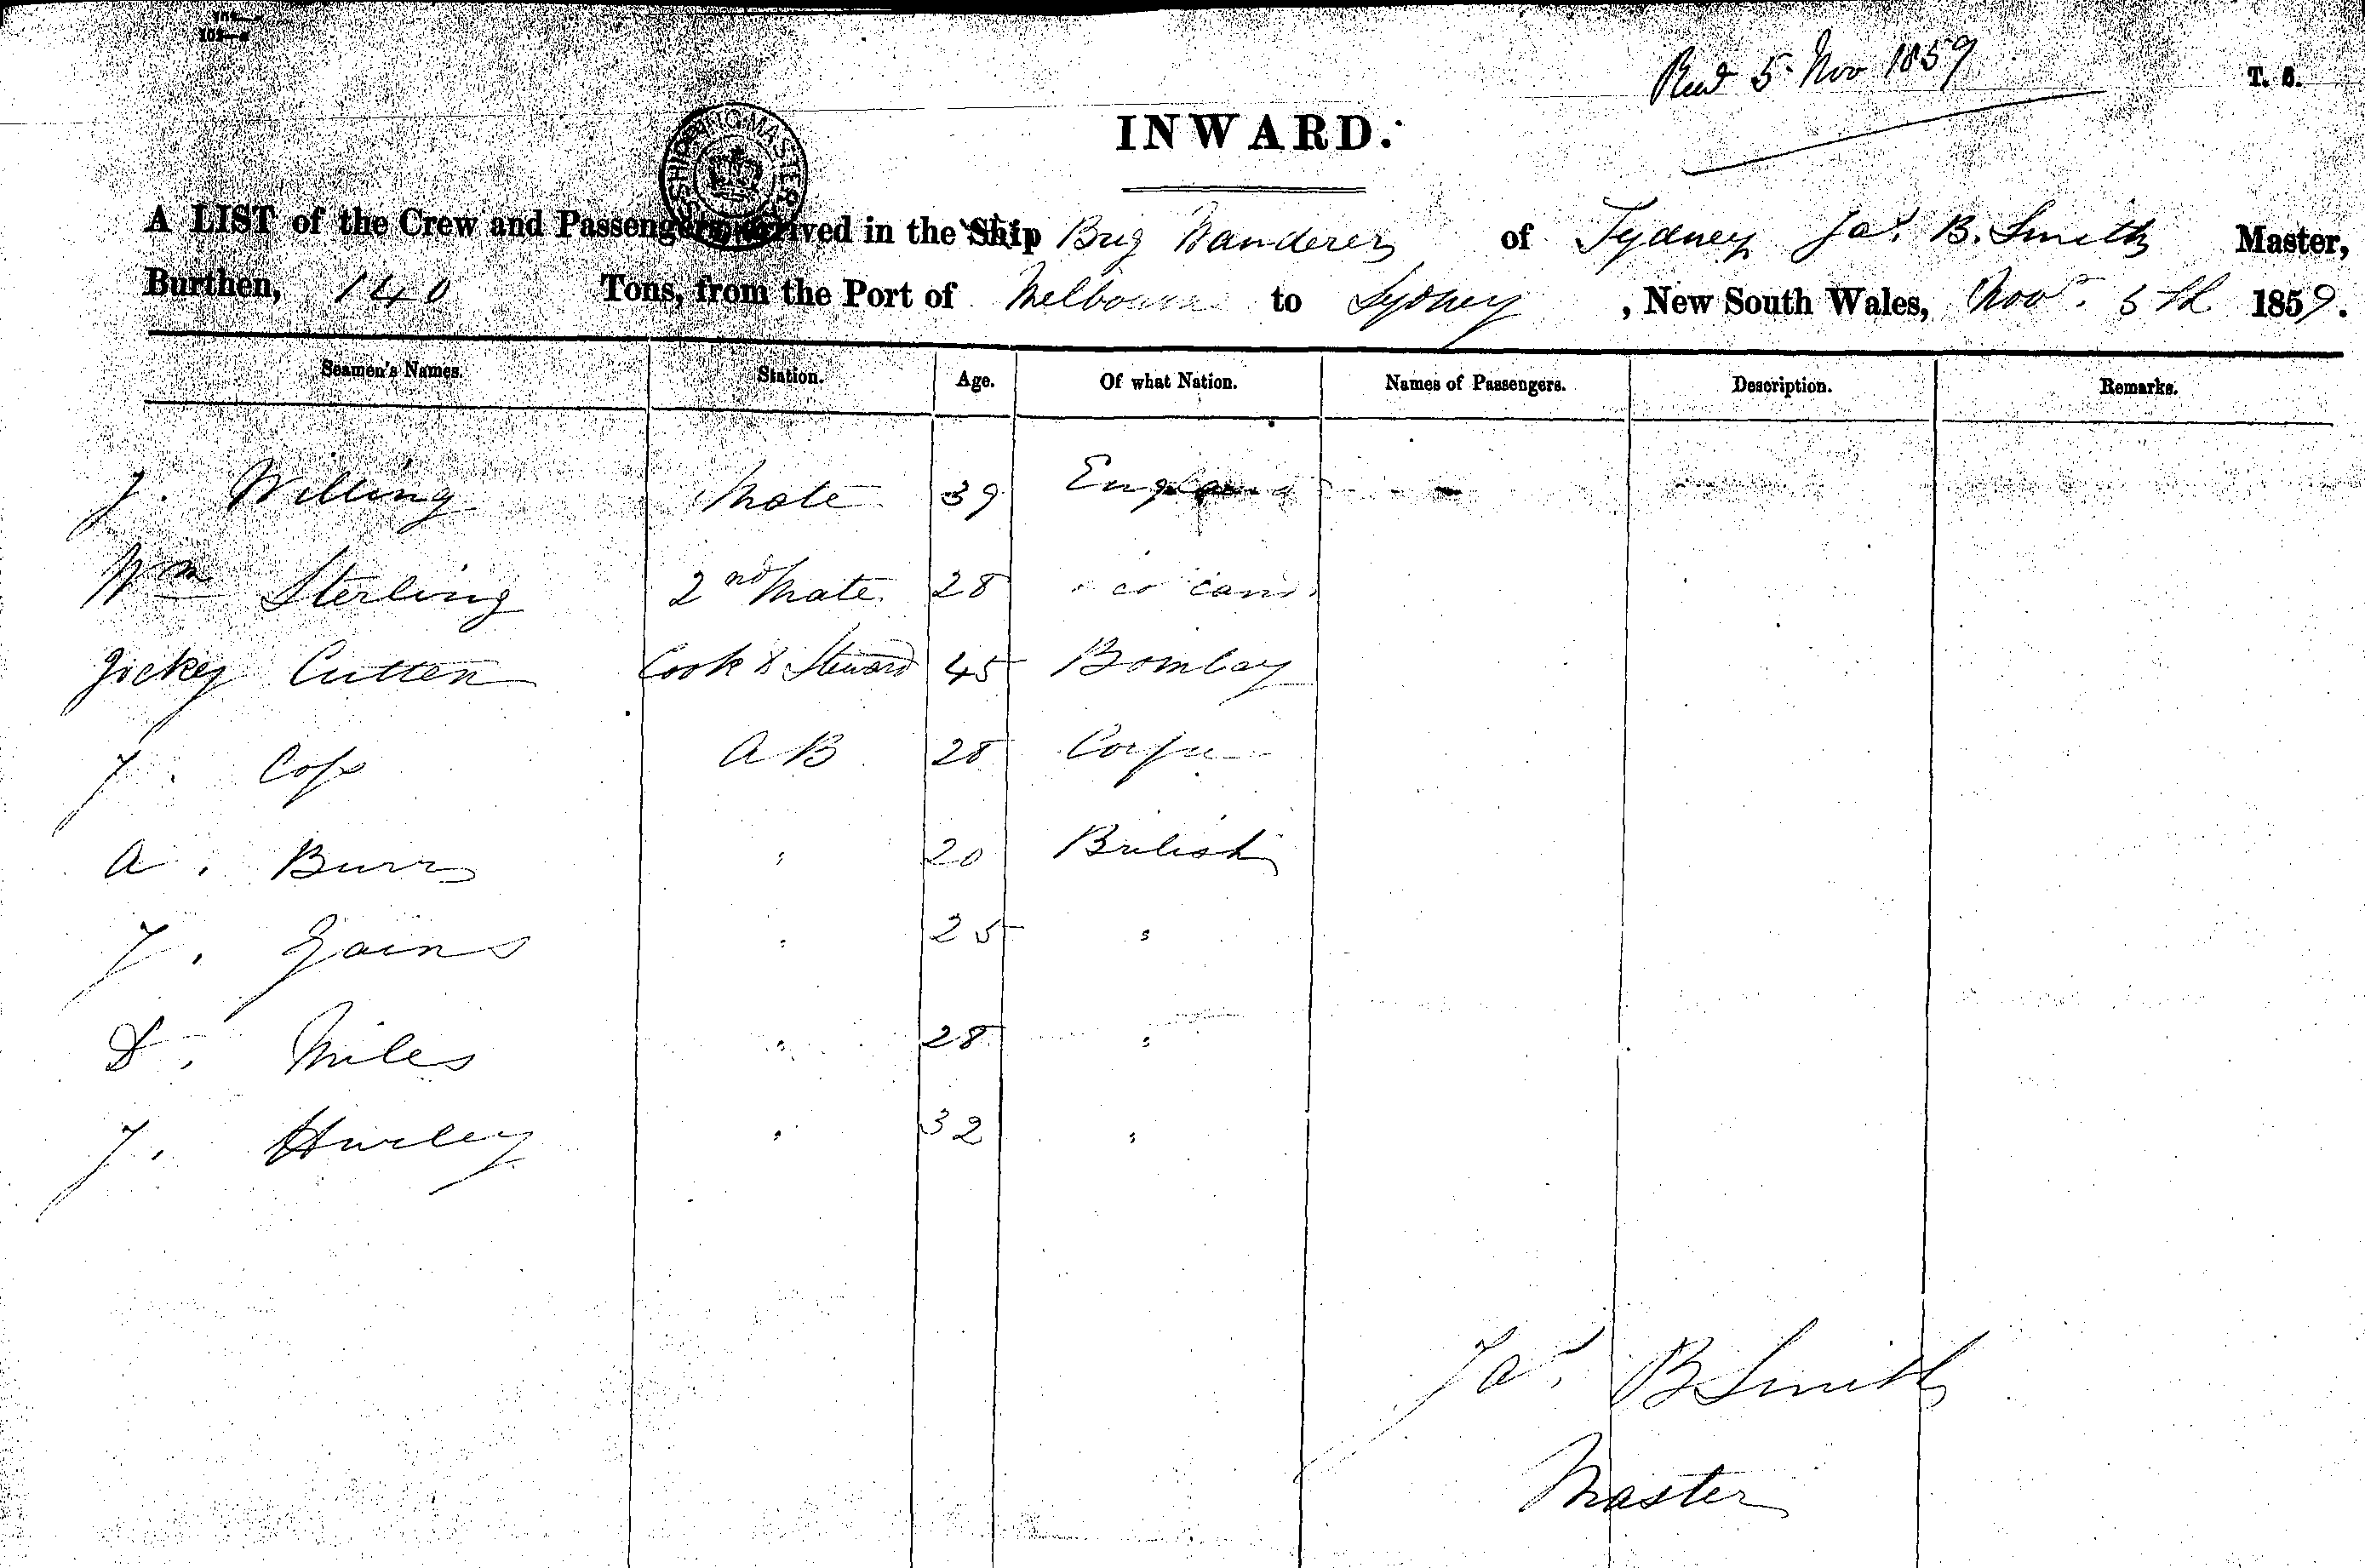 Recd 5 Nov 1859
T. S.
SHIPPING MASTER
INWARD.
A LIST of the Crew and Passengers arrived in the Ship Brig Wanderer of Sydney Jas. B. Smith Master,
Burthen, 140 Tons, from the Port of Melbourne to Sydney, New South Wales, Novr. 5th 1859.
Seamen's Names. Station. Age. Of what Nation. Names of Passengers. Description. Remarks.
J. Willing Mate 39 England
Wm Sterling 2nd Mate 28
Jickey Cutten Cook & Steward 45 Bombay
J. Cops A B 28 Corfu
A. Burns " 20 British
J. Gains " 25 "
D. Miles " 28 "
J. Hurley " 32 "
Jas. B Smith
Master